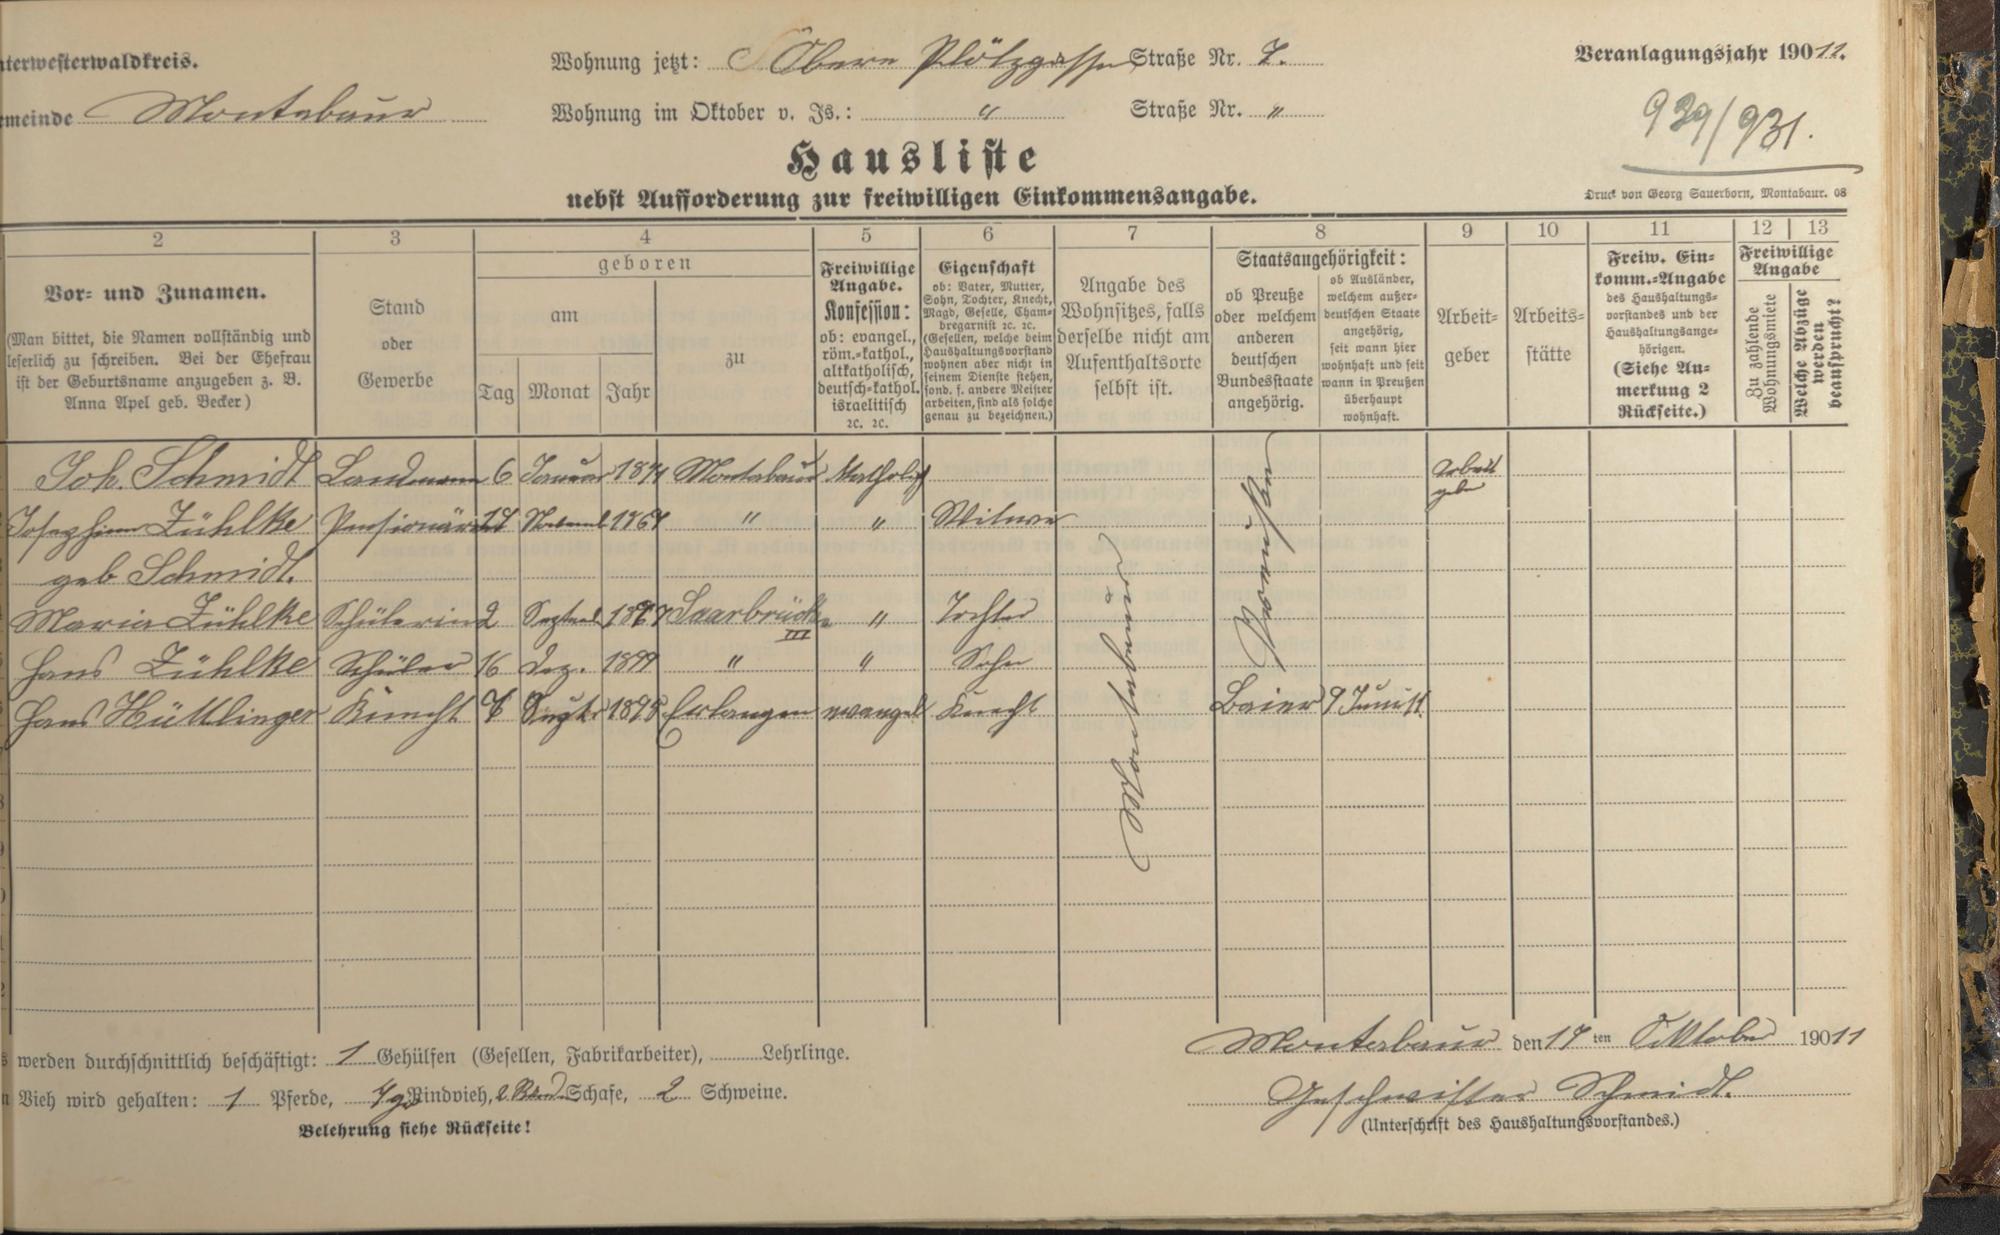 nterwesterwaldkreis.
Wohnung jetzt: Obere Plötzgasse Straße Nr. 7.
Veranlagungsjahr 190 11.
emeinde Montabaur
Wohnung im Oktober v. Js.: " Straße Nr. "
939/931.
Hausliste
nebst Aufforderung zur freiwilligen Einkommensangabe.
Druck von Georg Sauerborn, Montabaur. 08
2 3 4 5 6 7 8 9 10 11 12 13
Vor- und Zunamen.
(Man bittet, die Namen vollständig und
leserlich zu schreiben. Bei der Ehefrau
ist der Geburtsname anzugeben z. B.
Anna Apel geb. Becker)
Stand
oder
Gewerbe
geboren
am
zu
Tag Monat Jahr
Freiwillige
Angabe.
Konfession:
ob: evangel.,
röm.-kathol.,
altkatholisch,
deutsch-kathol.
israelitisch
2c. 2c.
Eigenschaft
ob: Vater, Mutter,
Sohn, Tochter, Knecht,
Magd, Geselle, Cham-
bregarnist 2c. 2c.
(Gesellen, welche beim
Haushaltungsvorstand
wohnen aber nicht in
seinem Dienste stehen,
sond. f. andere Meister
arbeiten, sind als solche
genau zu bezeichnen.)
Angabe des
Wohnsitzes, falls
derselbe nicht am
Aufenthaltsorte
selbst ist.
Staatsangehörigkeit:
ob Preuße
oder welchem
anderen
deutschen
Bundesstaate
angehörig.
ob Ausländer,
welchem außer-
deutschen Staate
angehörig,
seit wann hier
wohnhaft und seit
wann in Preußen
überhaupt
wohnhaft.
Arbeit-
geber
Arbeits-
stätte
Freiw. Ein-
komm.-Angabe
des Haushaltungs-
vorstandes und der
Haushaltungsange-
hörigen.
(Siehe An-
merkung 2
Rückseite.)
Freiwillige
Angabe
Zu zahlende
Wohnungsmiete
Welche Abzüge
werden
beansprucht?
Joh. Schmidt Landmann 6 Januar Montabaur Katholisch Arbeit
geber
Zühlke " " Witwe
geb Schmidt.
Maria Zühlke Schülerin 2 Saarbrücken " Tochter
III
Hans Zühlke Schüler 16 Dez. 1899 " " Sohn
Hans Hüttlinger Knecht Erlangen evangel Knecht Baier 9 Juni 11.
Preußen
werden durchschnittlich beschäftigt: 1 Gehülfen (Gesellen, Fabrikarbeiter), Lehrlinge.
Vieh wird gehalten: 1 Pferde, Rindvieh, Schafe, 2 Schweine.
Belehrung siehe Rückseite!
Montabaur den 17 ten Oktober 190 11
Geschwister Schmidt.
(Unterschrift des Haushaltungsvorstandes.)